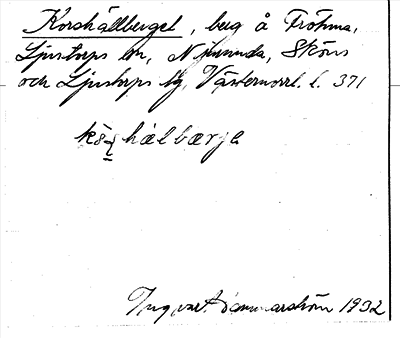 Korshällberget, berg å Fröhma,
Ljustorps sn, Njurunda, Sköns
och Ljustorps tg, Västernorrl. l. 371
hælbærje
Ingvar Hammarström 1932